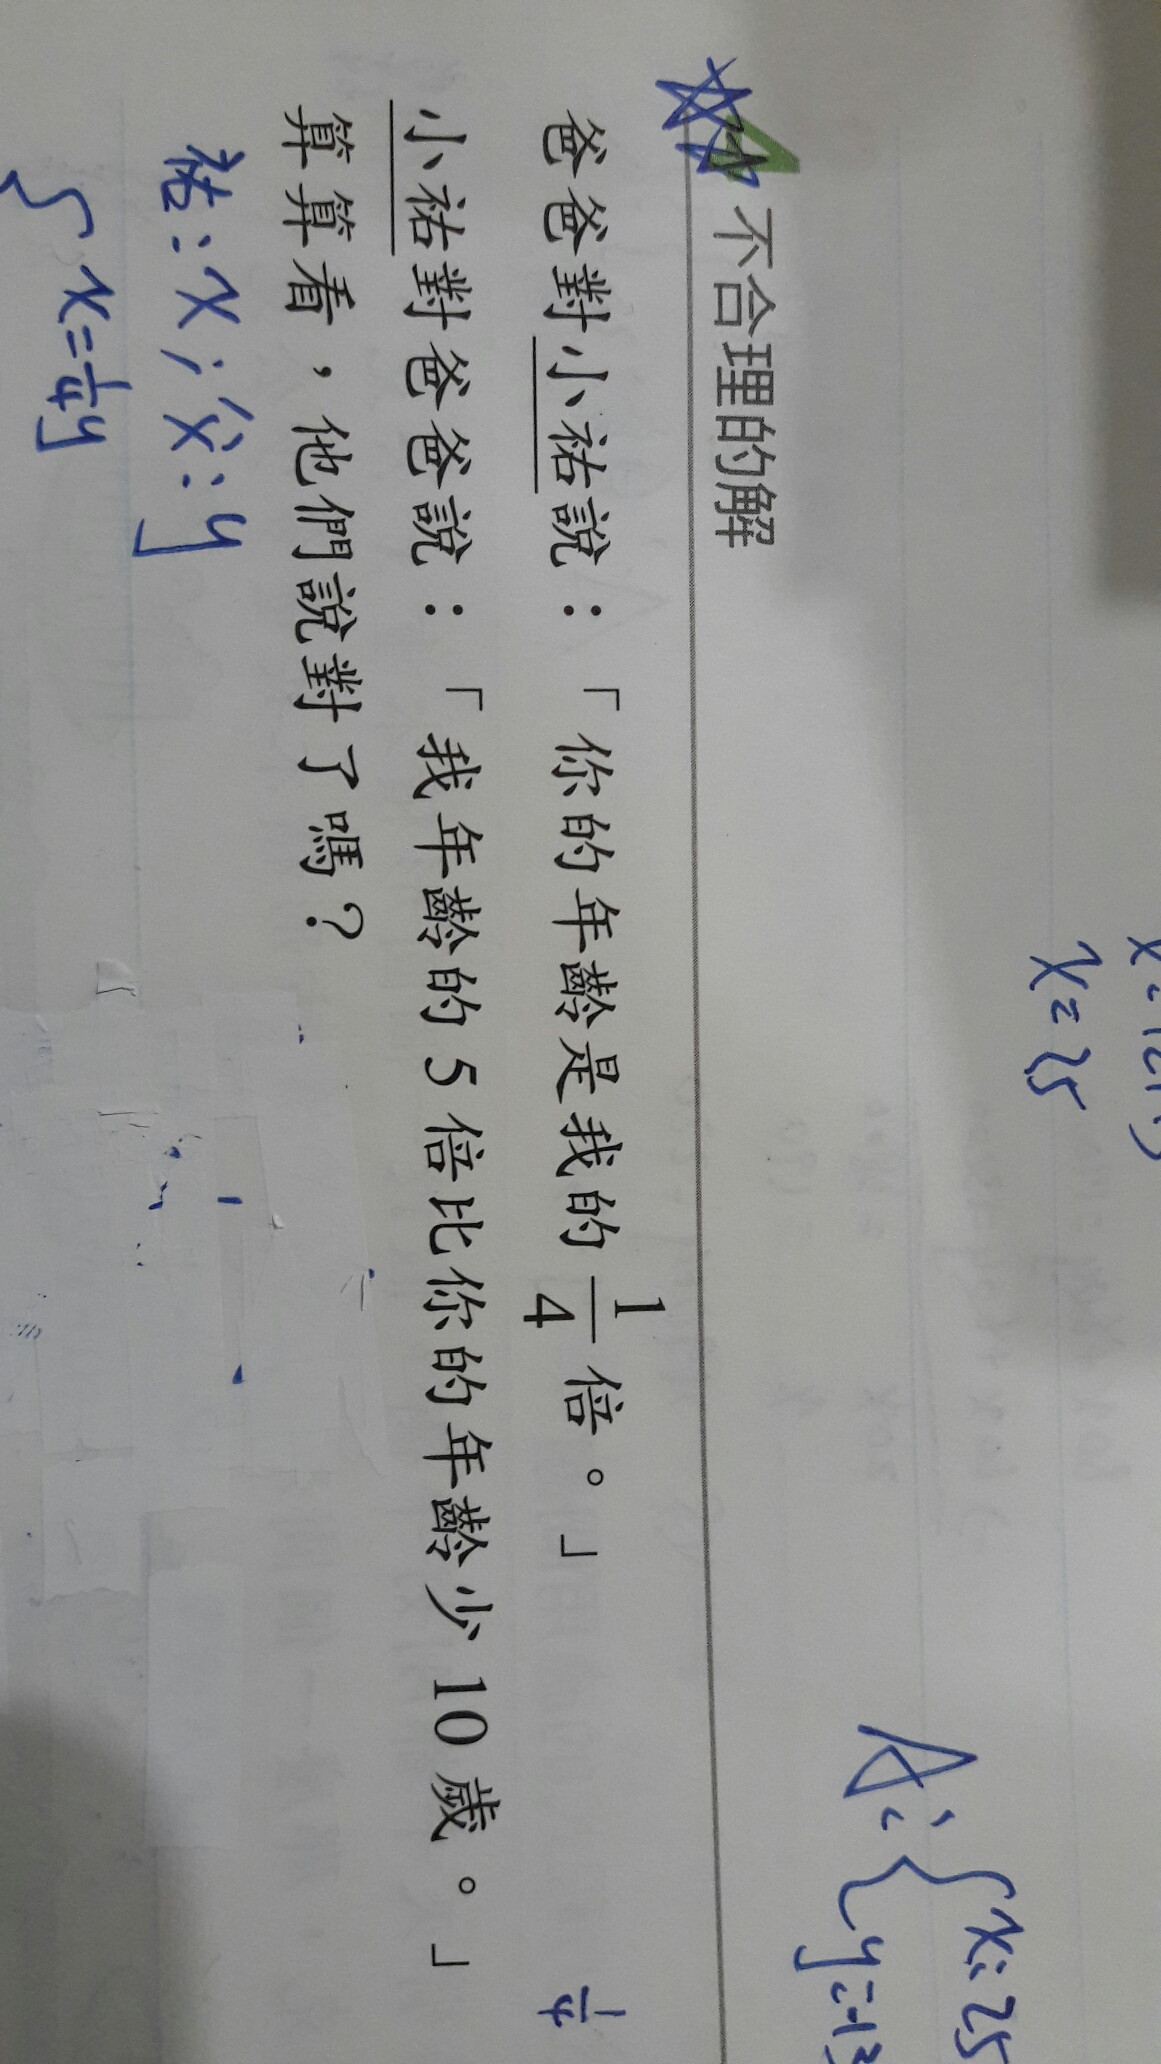 x=25
A: { x=25
不合理的解
爸爸對小祐說：「你的年齡是我的 1/4 倍。」
1/4
小祐對爸爸說：「我年齡的 5 倍比你的年齡少 10 歲。」
算算看，他們說對了嗎？
祐:x；爸:y
{ x=1/4y